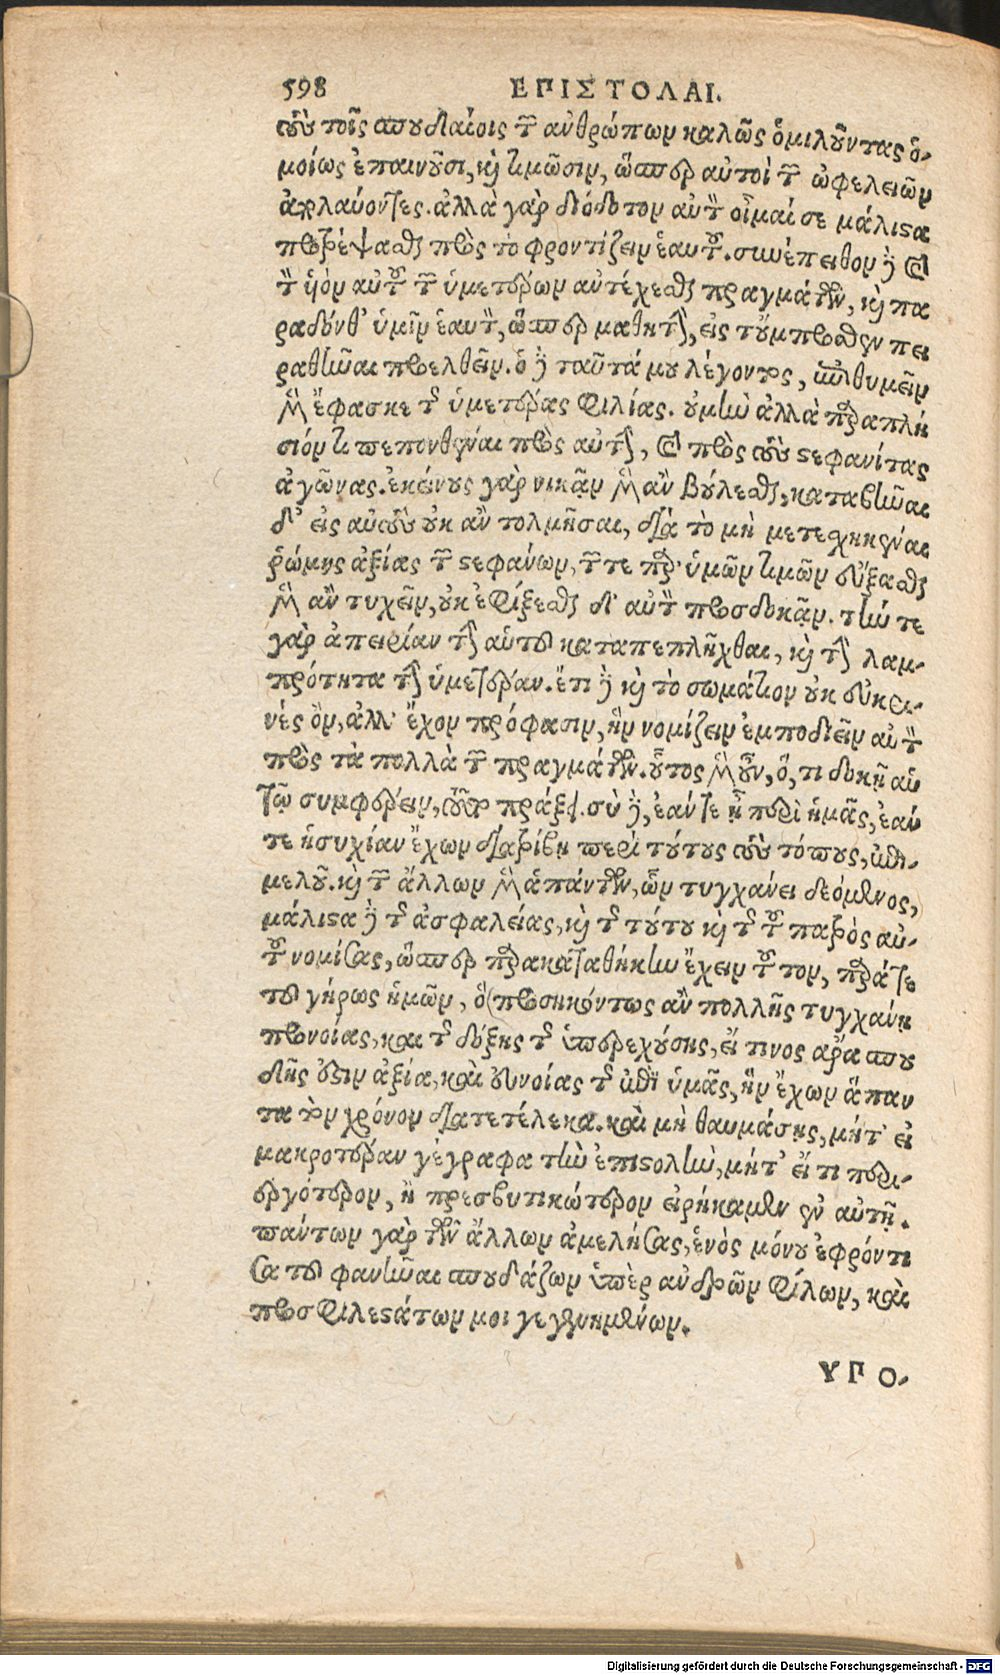 598 ΕΠΙΣΤΟΛΑΙ.
τοὺς τοῖς σπουδαίοις τῶν ἀνθρώπων καλῶς ὁμιλοῦντας ὁ-
μοίως ἐπαινοῦσι, καὶ τιμῶσιν, ὥσπερ αὐτοὶ τῶν ὠφελειῶν
ἀπολαύοντες. ἀλλὰ γὰρ διόδοτον αὐτὸν οἶμαί σε μάλιστα
προτρέψασθαι πρὸς τὸ φροντίζειν ἑαυτοῦ. συνέπειθον δὲ καὶ
τὸν ὑὸν αὐτοῦ τῶν ὑμετέρων ἀντέχεσθαι πραγμάτων, καὶ πα
ραδόνθ' ὑμῖν ἑαυτὸν, ὥσπερ μαθητὴν, εἰς τοὔμπροσθεν πει
ραθῆναι προελθεῖν. ὁ δὲ ταῦτά μου λέγοντος, ἐπιθυμεῖν
μὲν ἔφασκε τῆς ὑμετέρας φιλίας. οὐ μὴν ἀλλὰ παραπλή
σιόν τι πεπονθέναι πρὸς αὐτὴν, καὶ πρὸς τοὺς στεφανίτας
ἀγῶνας. ἐκείνους γὰρ νικᾷν μὲν ἂν βούλεσθαι, καταβῆναι
δ' εἰς αὐτοὺς οὐκ ἂν τολμῆσαι, διὰ τὸ μὴ μετεσχηκέναι
ῥώμης ἀξίας τῶν στεφάνων, τῶν τε παρ' ὑμῶν τιμῶν εὔξασθαι
μὲν ἂν τυχεῖν, οὐκ ἐφίξεσθαι δ' αὐτῶν προσδοκᾷν. τήν τε
γὰρ ἀπειρίαν τὴν αὑτοῦ καταπεπλῆχθαι, καὶ τὴν λαμ-
πρότητα τὴν ὑμετέραν. ἔτι δὲ καὶ τὸ σωμάτιον οὐκ εὐκρι-
νὲς ὂν, ἀλλ' ἔχον πρόφασιν, ἣν νομίζειν ἐμποδιεῖν αὐτὸν
πρὸς τὰ πολλὰ τῶν πραγμάτων. οὗτος μὲν οὖν, ὅ, τι δοκῇ αὑ
τῷ συμφέρειν, τοῦτο πράξει. σὺ δὲ, ἐάν τε ᾖ περὶ ἡμᾶς, ἐάν
τε ἡσυχίαν ἔχων διατρίβῃ περὶ τούτους τοὺς τόπους, ἐπι-
μελοῦ. καὶ τῶν ἄλλων μὲν ἁπάντων, ὧν τυγχάνει δεόμενος,
μάλιστα δὲ τῆς ἀσφαλείας, καὶ τῆς τούτου καὶ τῆς τοῦ πατρὸς αὐ-
τοῦ νομίσας, ὥσπερ παρακαταθήκην ἔχειν τοῦτον, παρά τε
τοῦ γήρως ἡμῶν, ὃ προσηκόντως ἂν πολλῆς τυγχάνῃ
προνοίας, καὶ τῆς δόξης τῆς ὑπερεχούσης, εἴ τινος ἄρα σπου
δῆς ἐστιν ἀξία, καὶ εὐνοίας τῆς ἐπὶ ὑμᾶς, ἣν ἔχων ἅπαν
τα τὸν χρόνον διατετέλεκα. καὶ μὴ θαυμάσῃς, μήτ' εἰ
μακροτέραν γέγραφα τὴν ἐπιστολὴν, μήτ' εἴ τι περι-
εργότερον, ἢ πρεσβυτικώτερον εἰρήκαμεν ἐν αὐτῇ.
πάντων γὰρ τῶν ἄλλων ἀμελήσας, ἑνὸς μόνου ἐφρόντι
σα τοῦ φανῆναι σπουδάζων ὑπὲρ ἀνδρῶν φίλων, καὶ
προσφιλεστάτων μοι γεγενημένων.
ΥΠΟ-
Digitalisierung gefördert durch die Deutsche Forschungsgemeinschaft - DFG